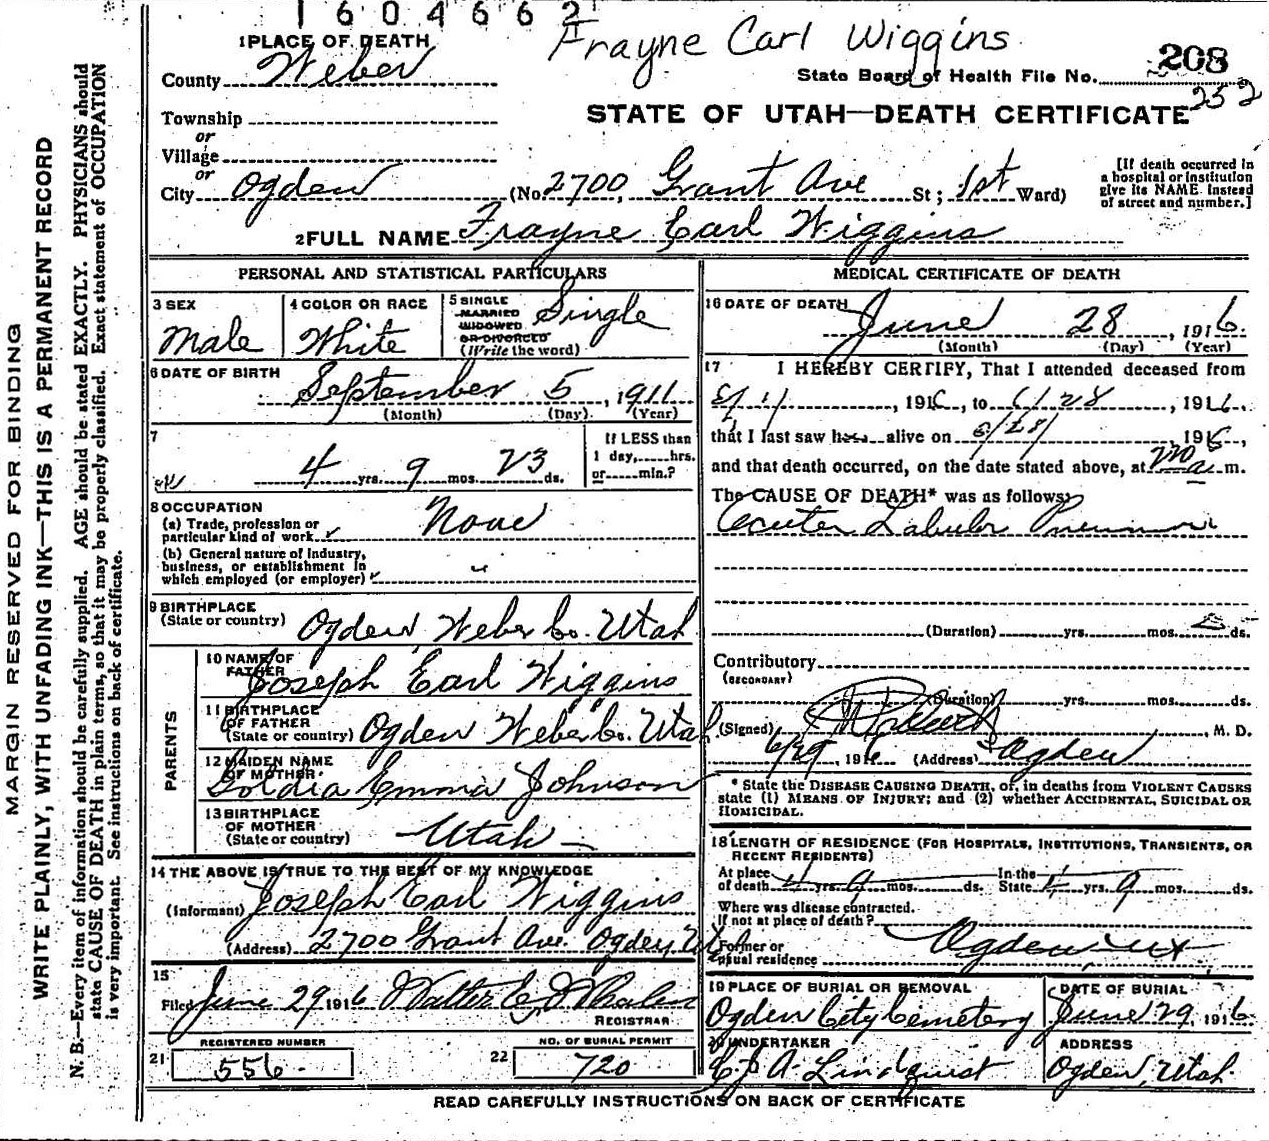 1604662
Frayne Carl Wiggins
1 PLACE OF DEATH
County Weber
State Board of Health File No. 208
232
Township
or
Village
or
STATE OF UTAH—DEATH CERTIFICATE
City Ogden (No. 2700, Grant Ave St; 1st Ward)
[If death occurred in a hospital or institution give its NAME instead of street and number.]
2 FULL NAME Frayne Earl Wiggins
PERSONAL AND STATISTICAL PARTICULARS
3 SEX Male
4 COLOR OR RACE White
5 SINGLE MARRIED WIDOWED OR DIVORCED (Write the word) Single
6 DATE OF BIRTH
September 5, 1911
(Month) (Day) (Year)
7
4 yrs. 9 mos. 23 ds.
If LESS than
1 day, hrs.
or min.?
8 OCCUPATION
(a) Trade, profession or
particular kind of work None
(b) General nature of industry,
business, or establishment in
which employed (or employer)
9 BIRTHPLACE
(State or country) Ogden, Weber Co. Utah
PARENTS
10 NAME OF
FATHER Joseph Earl Wiggins
11 BIRTHPLACE
OF FATHER
(State or country) Ogden Weber Co. Utah
12 MAIDEN NAME
OF MOTHER Goldia Emma Johnson
13 BIRTHPLACE
OF MOTHER
(State or country) Utah
14 THE ABOVE IS TRUE TO THE BEST OF MY KNOWLEDGE
(Informant) Joseph Earl Wiggins
(Address) 2700 Grant Ave. Ogden, Utah
15
Filed June 29 1916 Walter
REGISTRAR
REGISTERED NUMBER
21 556
NO. OF BURIAL PERMIT
22 720
MEDICAL CERTIFICATE OF DEATH
16 DATE OF DEATH
June 28, 1916.
(Month) (Day) (Year)
17 I HEREBY CERTIFY, That I attended deceased from
, 1916, to 6/28, 1916,
that I last saw him alive on 6/28/, 1916,
and that death occurred, on the date stated above, at m.
The CAUSE OF DEATH* was as follows:
(Duration) yrs. mos. ds.
Contributory
(SECONDARY)
(Duration) yrs. mos. ds.
(Signed) , M. D.
6/29, 1916 (Address) Ogden
* State the DISEASE CAUSING DEATH, or, in deaths from VIOLENT CAUSES
state (1) MEANS OF INJURY; and (2) whether ACCIDENTAL, SUICIDAL OR
HOMICIDAL.
18 LENGTH OF RESIDENCE (FOR HOSPITALS, INSTITUTIONS, TRANSIENTS, OR
RECENT RESIDENTS)
At place
of death 4 yrs. 9 mos. ds. In the
State 4 yrs. 9 mos. ds.
Where was disease contracted.
If not at place of death?
Former or
usual residence Ogden, Ut
19 PLACE OF BURIAL OR REMOVAL
Ogden City Cemetery
DATE OF BURIAL
June 29, 1916
20 UNDERTAKER
A. Lindquist
ADDRESS
Ogden, Utah
READ CAREFULLY INSTRUCTIONS ON BACK OF CERTIFICATE
MARGIN RESERVED FOR BINDING
WRITE PLAINLY, WITH UNFADING INK—THIS IS A PERMANENT RECORD
N. B.—Every item of information should be carefully supplied. AGE should be stated EXACTLY. PHYSICIANS should
state CAUSE OF DEATH in plain terms, so that it may be properly classified. Exact statement of OCCUPATION
is very important. See instructions on back of certificate.